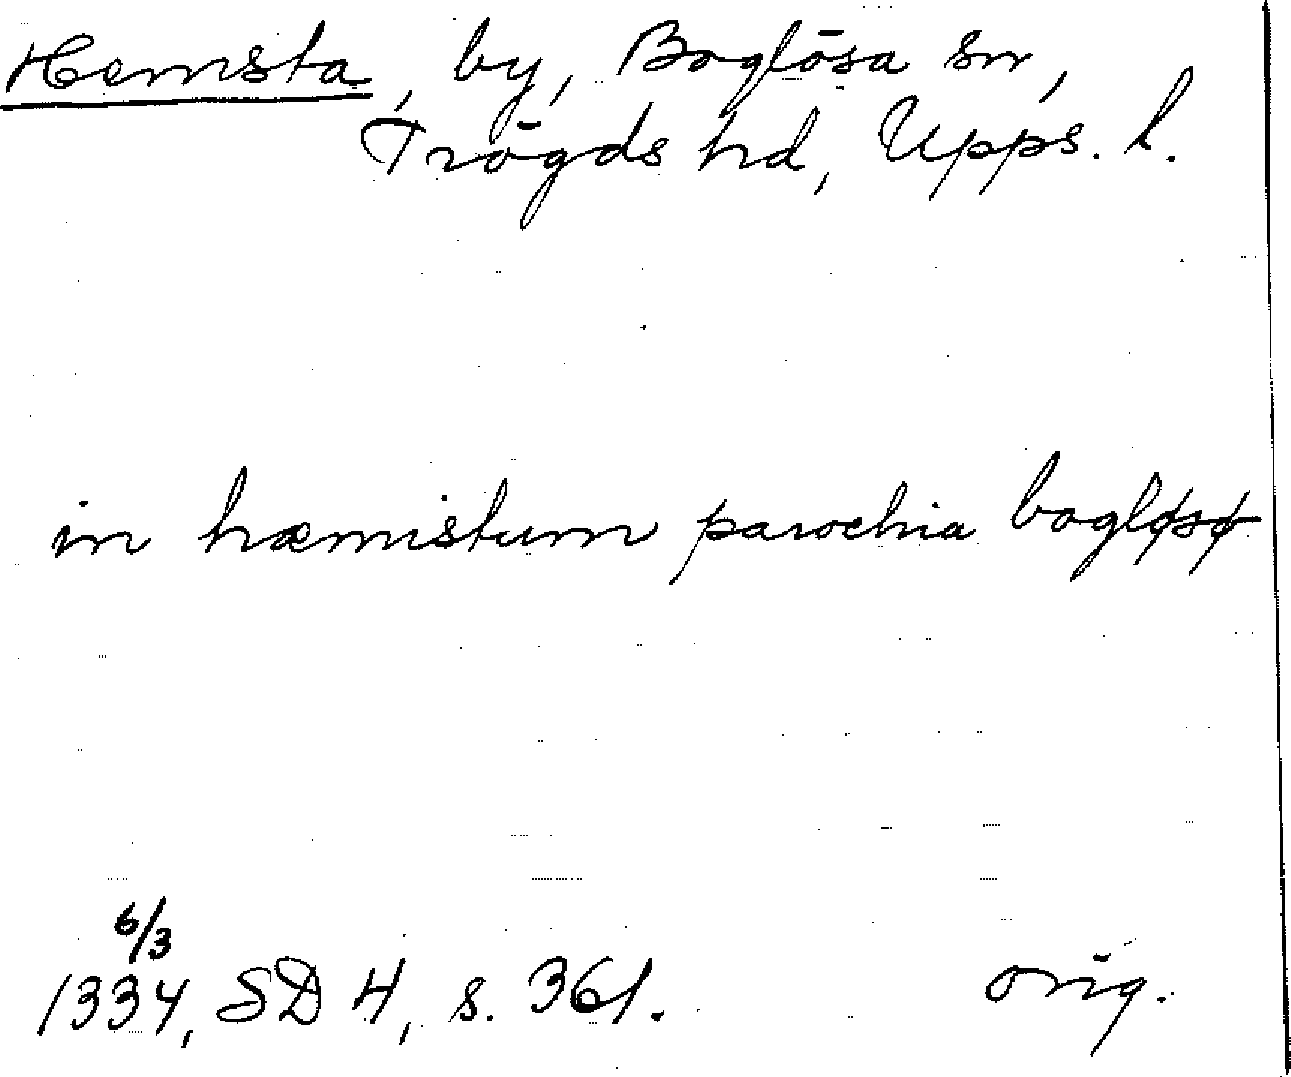 Hemsta, by, Boglösa sn,
Trögds hd, Upps. l.
in hæmistum parochia bogløsø
6/3
1334, SD 4, s. 361.
orig.